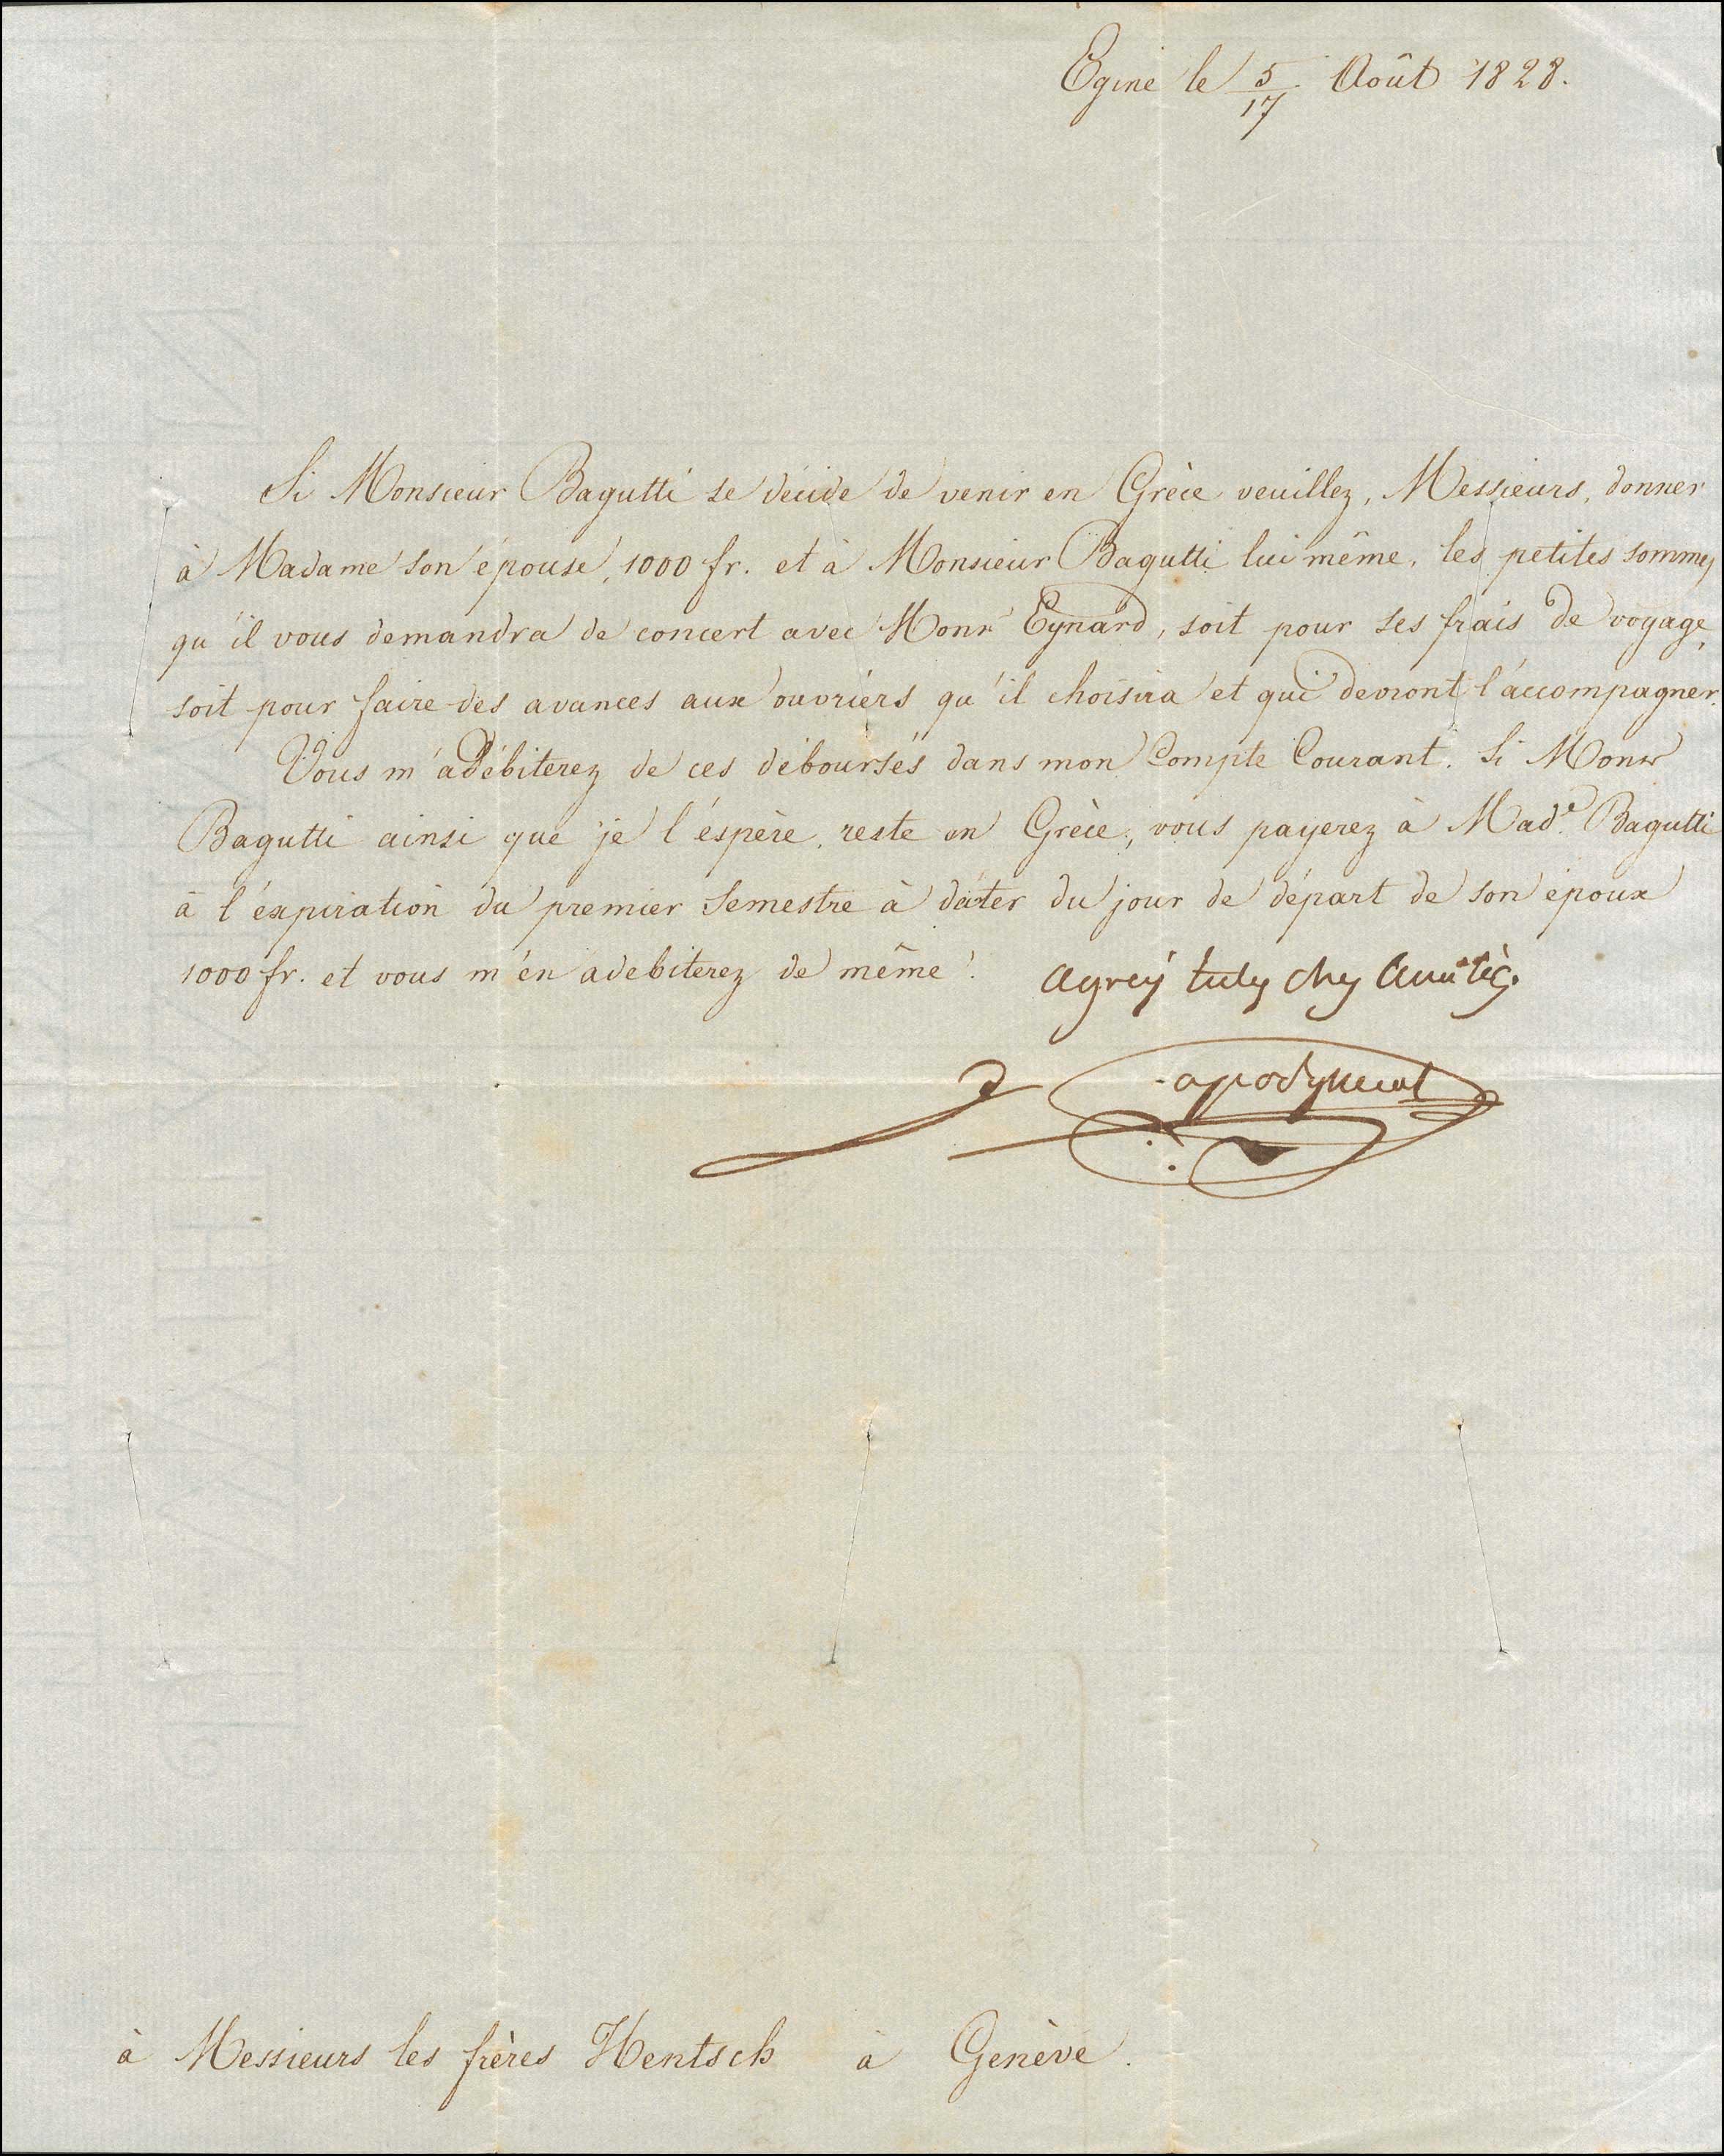 Egine le 5/17 Août 1828.
Si Monsieur Bagutti se décide de venir en Grèce veuillez, Messieurs, donner
à Madame son épouse, 1000 fr. et à Monsieur Bagutti lui même, les petites sommes
qu'il vous demandra de concert avec Monr Eynard, soit pour ses frais de voyage,
soit pour faire des avances aux ouvriers qu'il choisira et qui devront l'accompagner.
Vous m'adébiterez de ces déboursés dans mon Compte Courant. Si Monsr
Bagutti ainsi que je l'éspère, reste en Grèce, vous payerez à Made. Bagutti
à l'éxpiration du premier Semestre à dater du jour de départ de son époux
1000 fr. et vous m'en adebiterez de même.
à Messieurs les frères Hentsch à Genève.